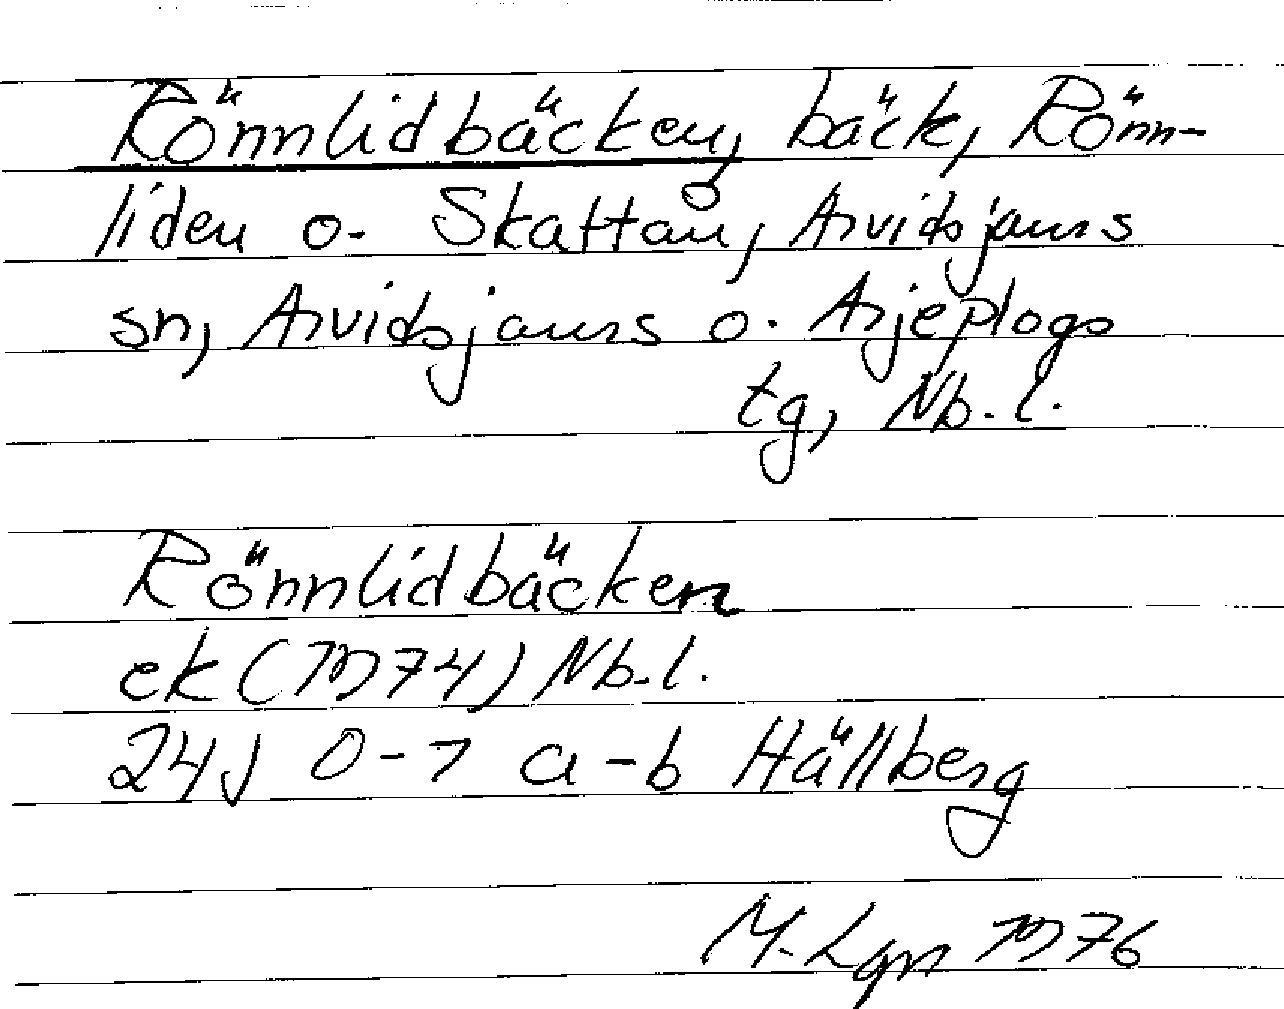 Rönnlidbäcken, bäck, Rönn-
liden o. Skattån, Arvidsjaurs
sn, Arvidsjaurs o. Arjeplogs
tg, Nb.l.
Rönnlidbäcken
ek (1974) Nb.l.
24J 0-1 a-b Hällberg
M. Lgn 1976